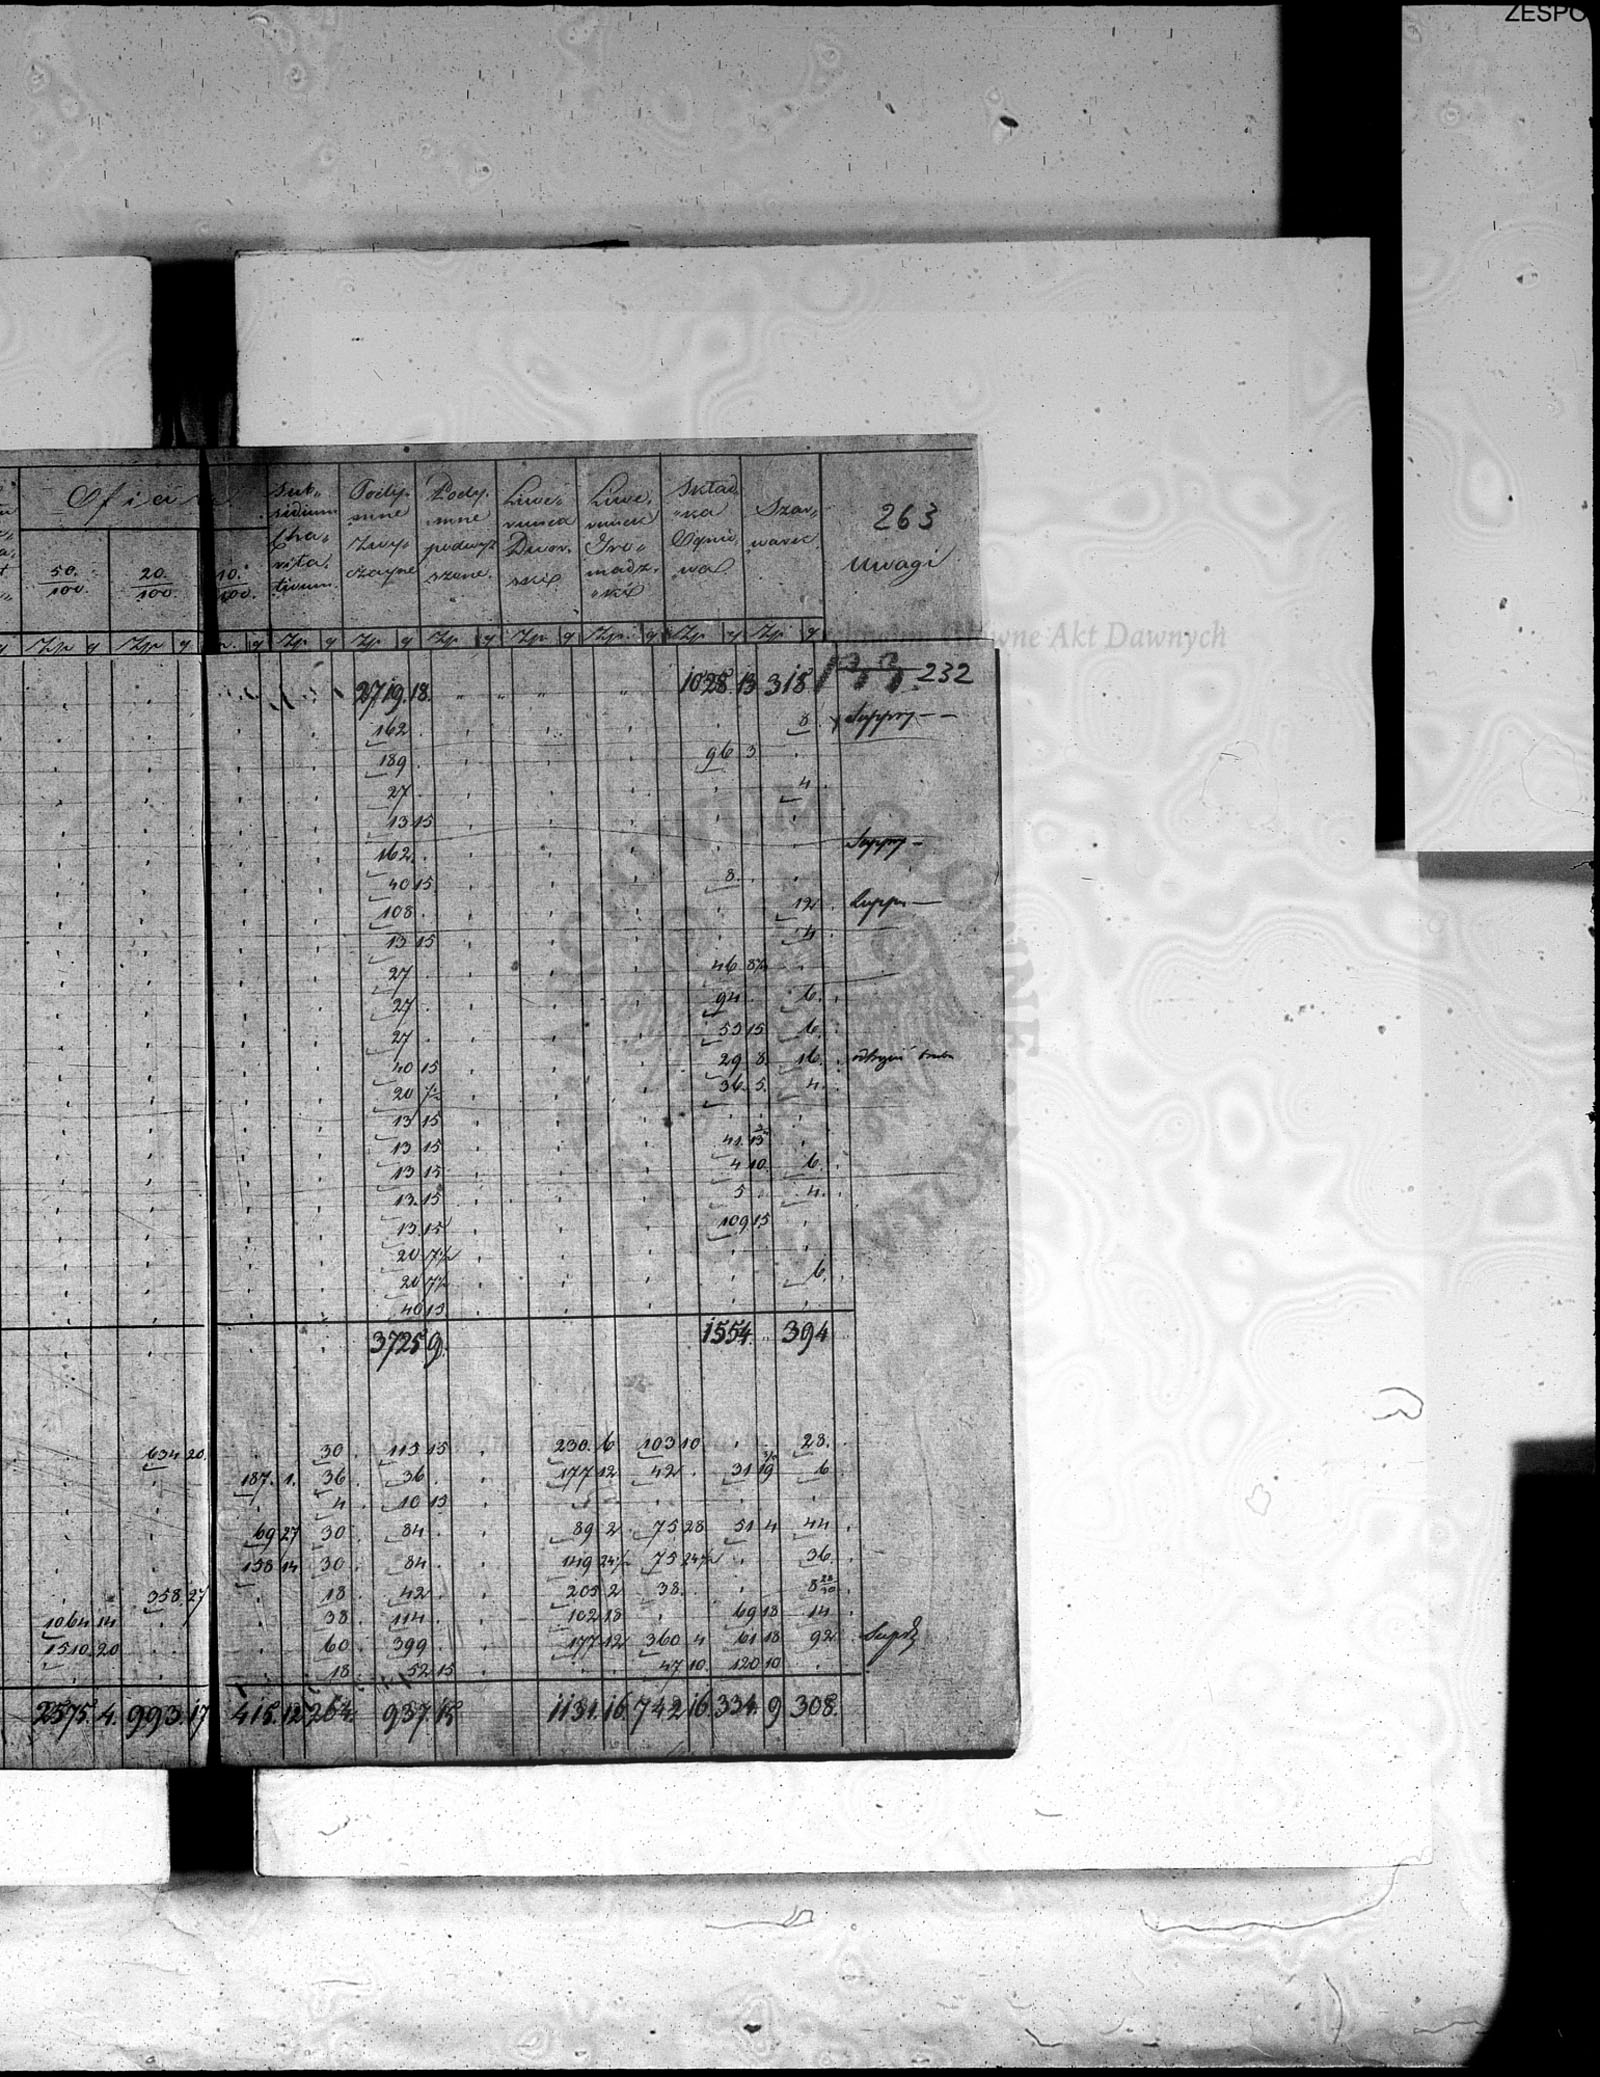 ZESPO
263
Ofiara
50/100. 20./100. 10./100.
Subsidium Charitativum.
Podymne Zwyczayne
Podymne podwyższone.
Liwerunek Dworski
Liwerunek Gromadzki
Składka Ogniowa
Szarwarek
Uwagi
Zp g Zp g Zp g Zp g Zp g Zp g Zp g Zp g Zp g
Archiwum Główne Akt Dawnych
2719.18. 1028.13 318 232
162 8
189 96 3
27 4
13 15
162
40 15 8
108 12
13 15 4
27 46
27 94 6
27 53 15 6
40 15 29 8 16
20 36 5 4
13 15
13 15 41
13 15 4 10 6
13 15 5 4
13 15 109 15
20 7½
20 7½ 6
40 15
3725 9 1554 394
634 20 30 113 15 230 6 103 10 28
187 1 36 36 177 12 42 31 6
4 10 15
69 27 30 84 89 2 75 28 51 4 44
158 14 30 84 149 24½ 75 24½ 36
358 27 18 42 205 2 38
1064 14 38 114 102 18 69 18 14
1510 20 60 399 177 12 360 4 61 18 92
18 52 15 47 10 120 10
2575 4 993 17 415 12 264 937 15 1131 16 742 16 334 9 308